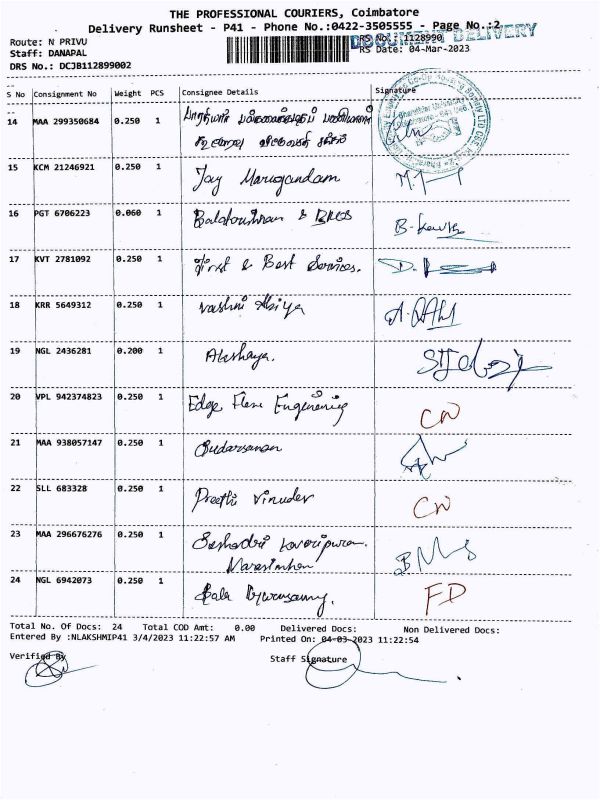 THE PROFESSIONAL COURIERS, Coimbatore
Delivery Runsheet - P41 - Phone No.:0422-3505555 - Page No.:2
DOCUMENT DELIVERY
Route: N PRIVU
RS No.: 1128990
Staff: DANAPAL
RS Date: 04-Mar-2023
DRS No.: DCJB112899002
S No Consignment No Weight PCS Consignee Details Signature
14 MAA 299350684 0.250 1
15 KCM 21246921 0.250 1 Jay Marugandam
16 PGT 6706223 0.060 1 Balakrishnan & Bros
17 KVT 2781092 0.250 1 First & Best Services.
18 KRR 5649312 0.250 1
19 NGL 2436281 0.200 1 Akshaya.
20 VPL 942374823 0.250 1 Edge Flex Engineering CN
21 MAA 938057147 0.250 1 Sudarsanan
22 SLL 683328 0.250 1 Preethi Vinudev CN
23 MAA 296676276 0.250 1 Seshadri
Narasimhan
24 NGL 6942073 0.250 1 Bala FD
Total No. Of Docs: 24 Total COD Amt: 0.00 Delivered Docs: Non Delivered Docs:
Entered By :NLAKSHMIP41 3/4/2023 11:22:57 AM Printed On: 04-03-2023 11:22:54
Verified By Staff Signature